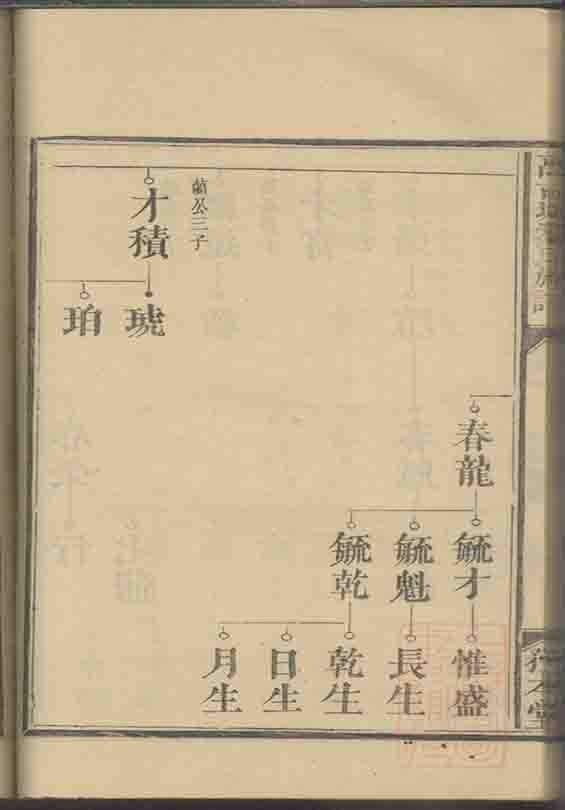 蘭公三子
才積
琥
珀
春龍
毓才
毓魁
毓乾
惟盛
長生
乾生
日生
月生